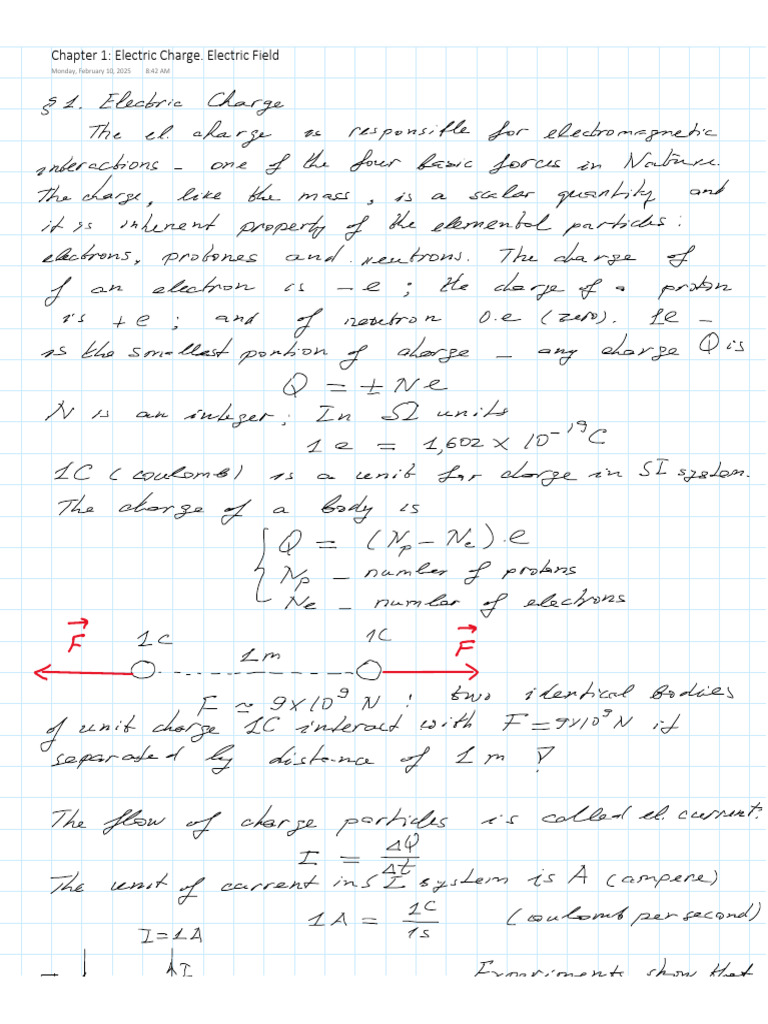 Chapter 1: Electric Charge. Electric Field
Monday, February 10, 2025 8:42 AM
§ 1. Electric Charge
The el. charge is responsible for electromagnetic
interactions – one of the four basic forces in Nature.
The charge, like the mass, is a scalar quantity and
it is inherent property of the elemental particles:
electrons, protones and neutrons. The charge of
of an electron is – e ; the charge of a proton
is + e ; and of neutron 0.e (zero). 1e –
is the smallest portion of charge – any charge Q is
Q = ± N e
N is an integer; In SI units
1 e = 1,602 × 10⁻¹⁹ C
1C (coulomb) is a unit for charge in SI system.
The charge of a body is
Q = (Np – Ne).e
Np – number of protons
Ne – number of electrons
F 1C 1C F
1 m
F ≃ 9×10⁹ N ! two identical bodies
of unit charge 1C interact with F = 9×10⁹ N if
separated by distance of 1 m !
The flow of charge particles is called el. current:
I = ΔQ/Δt
The unit of current in SI system is A (ampere)
1A = 1C/1s (coulomb per second)
I = 1A
I Experiments show that